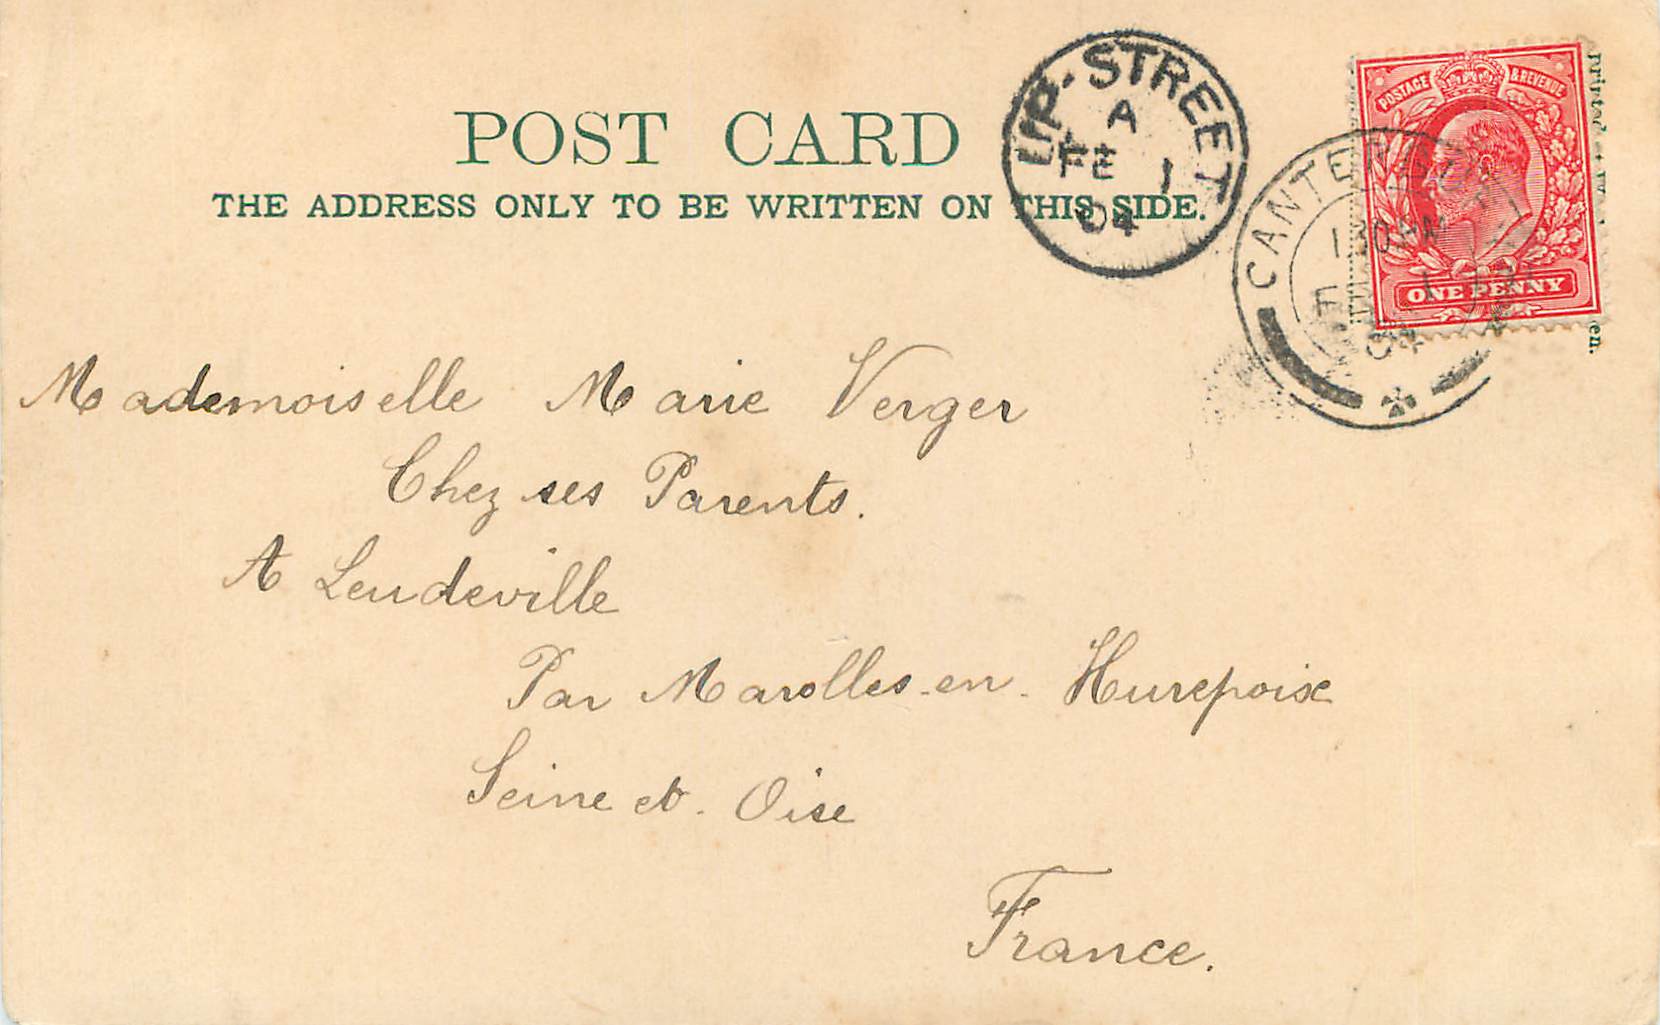 POST CARD
THE ADDRESS ONLY TO BE WRITTEN ON THIS SIDE.
UP-STREET
A
FE 1
04
POSTAGE & REVENUE
ONE PENNY
CANTERBURY
1 30 AM
FE 1
04
Mademoiselle Marie Verger
Chez ses Parents.
A Leudeville
Par Marolles-en-Hurepoix
Seine et. Oise
France.